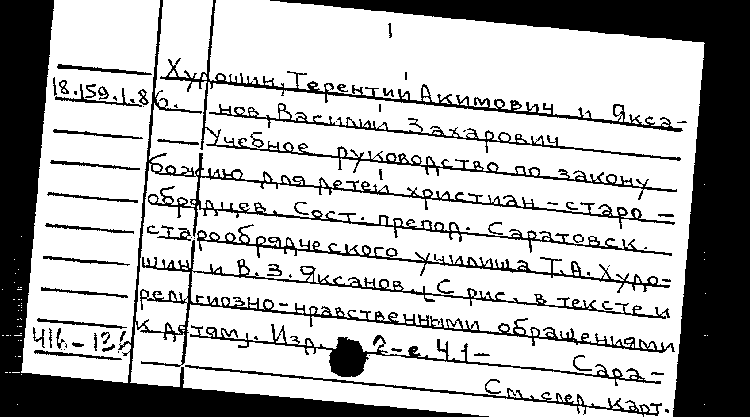 1
Худошин, Терентий Акимович иЯкса-
18.159.1.86. нов, Василий Захарович
Учебное руководство по закону
божию для детей христиан-старо-
обрядцев. Сост. препод. Саратовск.
старообрядческого училища Т.А. Худо-
шин и В.З. Яксанов. [С рис. в тексте и
религиозно-нравственными обращениями
416-126 к детям]. Изд. 2-е. Ч.1- Сара-
См. след. карт.